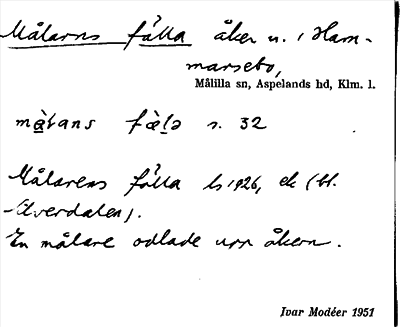 Målarns fålla åker n. i Ham-
marsebo,
Målilla sn, Aspelands hd, Klm. l.
màḷans fàḷa s. 32
Målarens fålla ls 1926, ek (bl.
Silverdalen).
En målare odlade upp åkern.
Ivar Modéer 1951